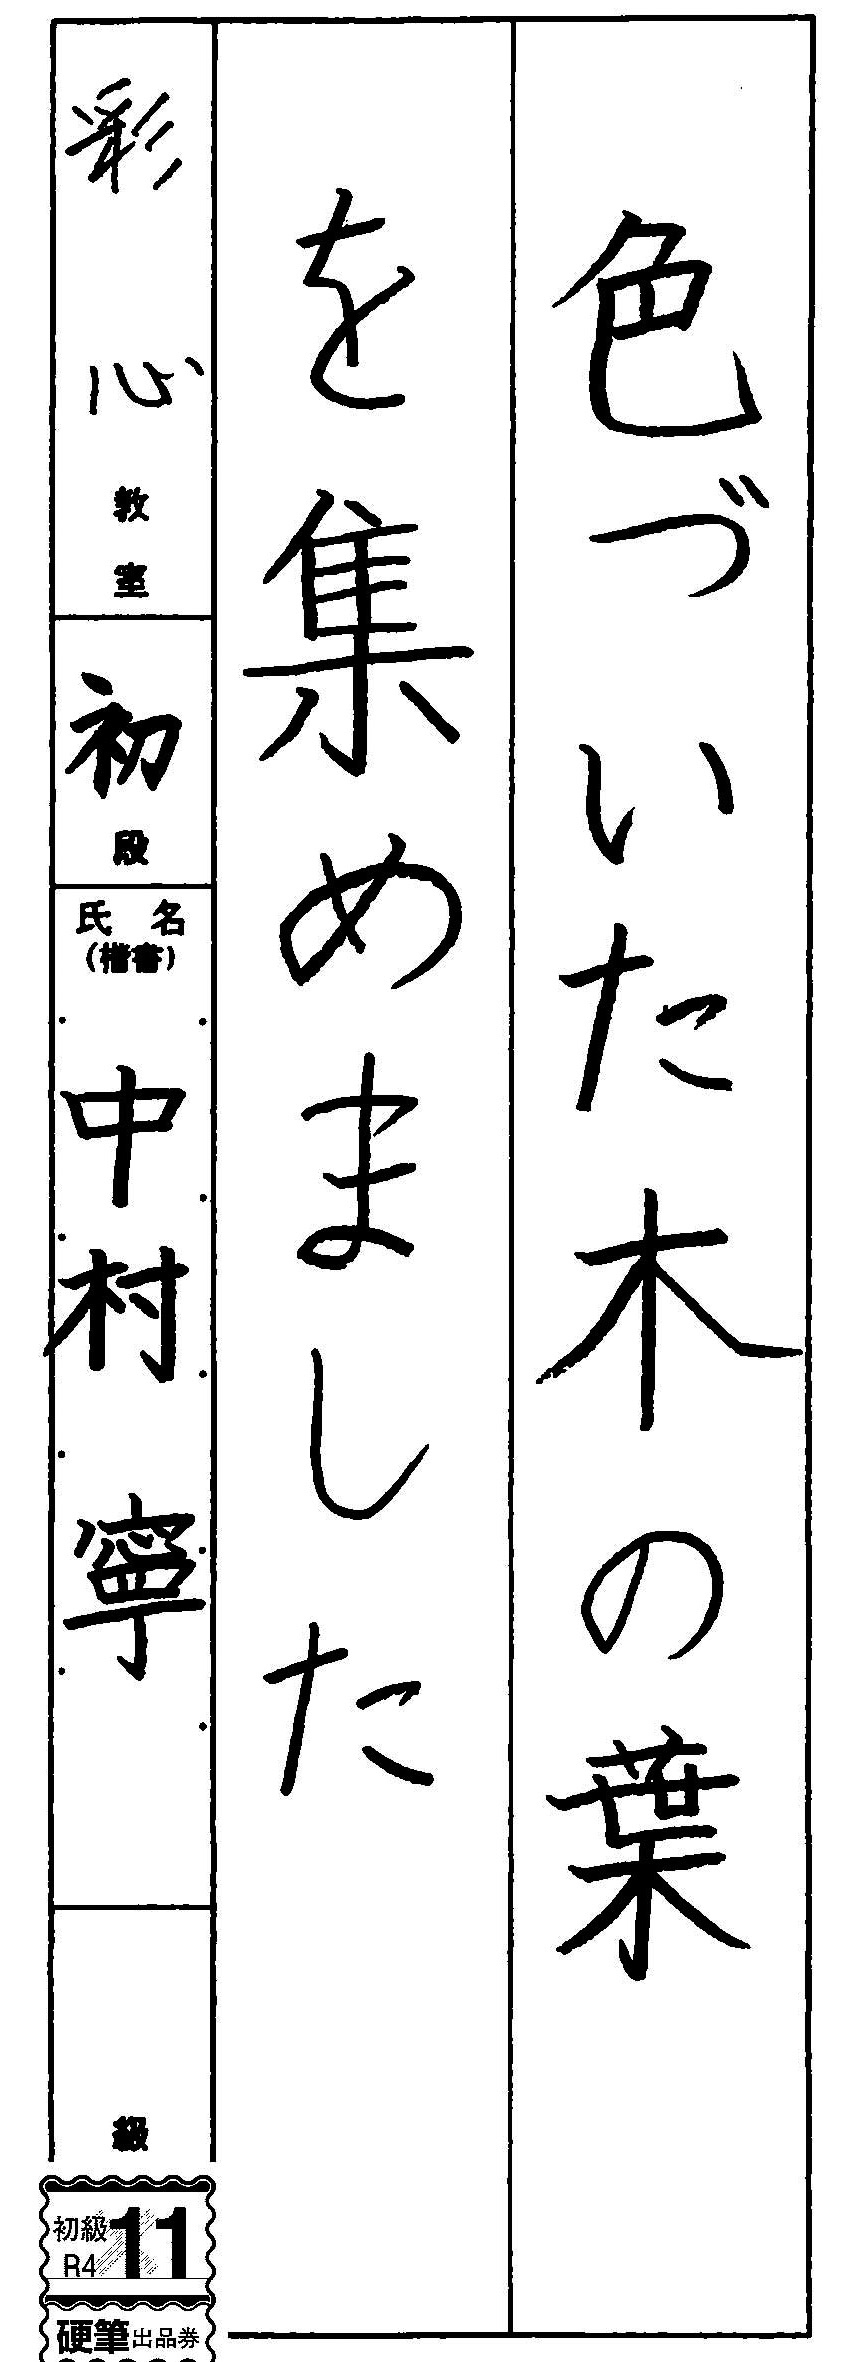 色づいた木の葉
を集めました
彩心教室
初段
氏名
(楷書)
中村寧
級
初級
R4
11
硬筆出品券